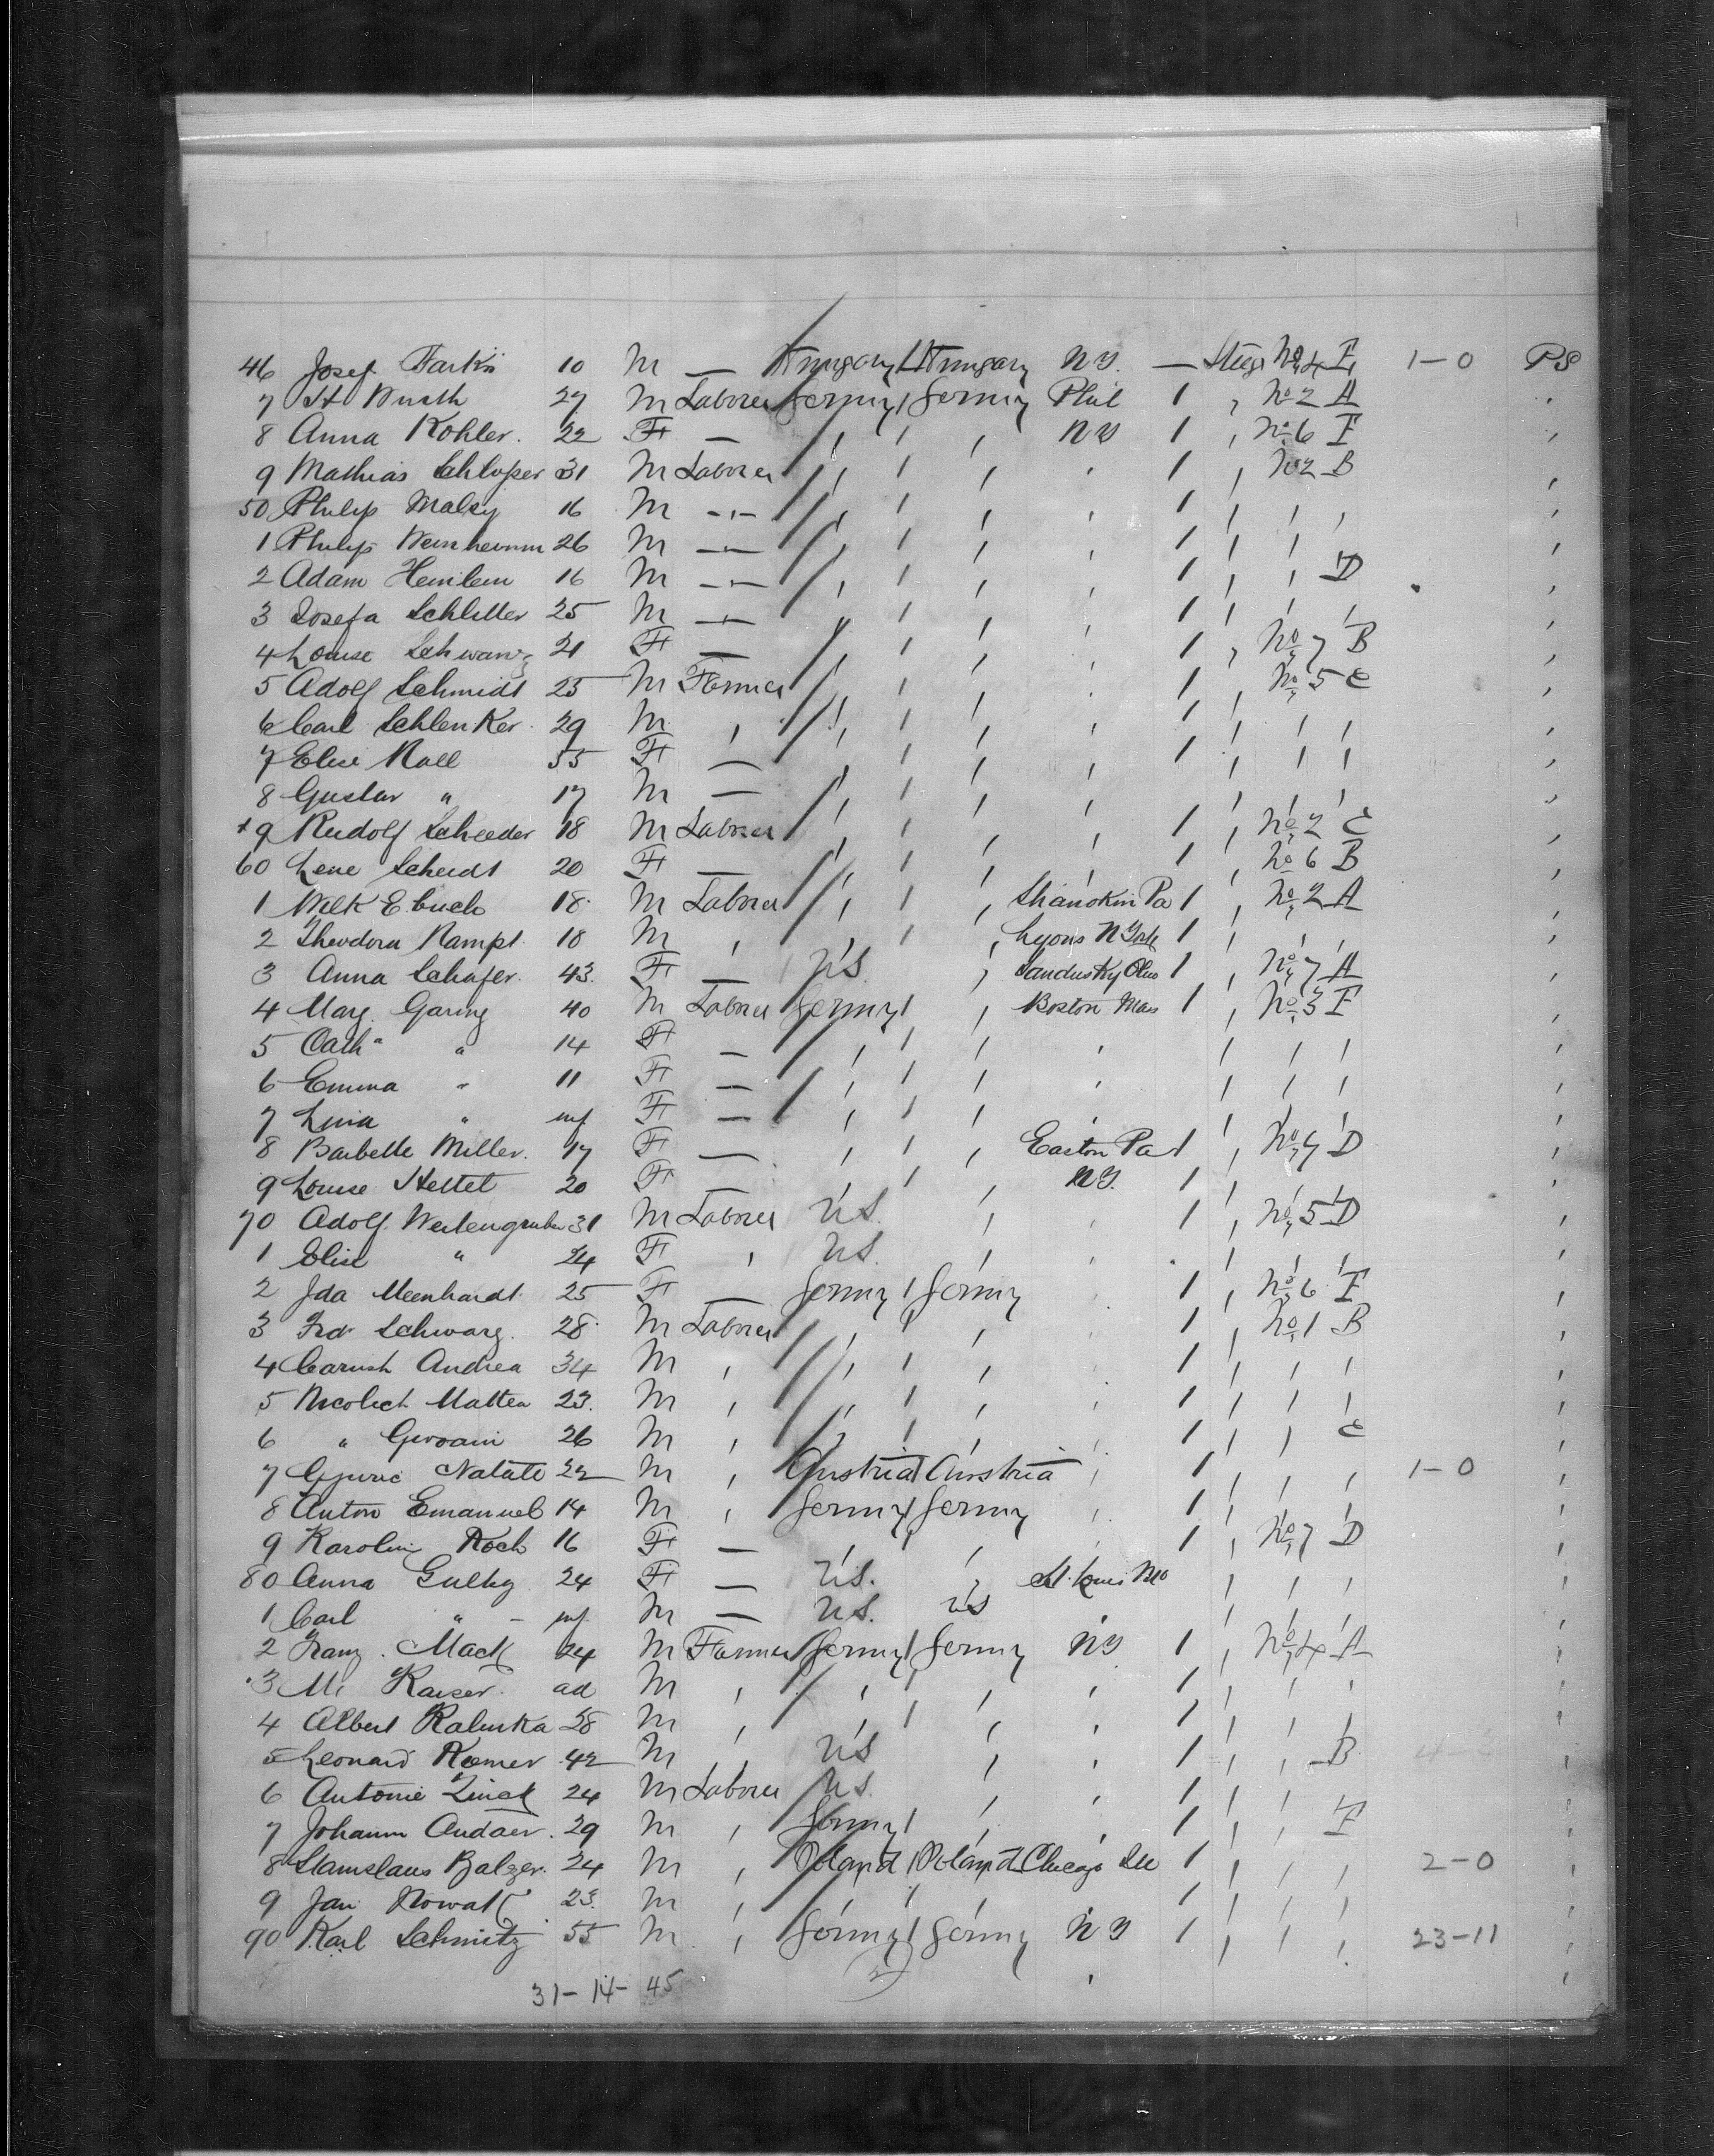 46 Josef Farkis 10 M — Hungary / Hungary N Y. — Stege No 4 F 1-0 PS
7 H Wusth 27 M Laborer Germny / Germny Phil 1 , No 2 A
8 Anna Kohler. 22 F — , / , N Y 1 , No 6 F ,
9 Mathias Schlosser 31 M Laborer , / , , 1 , No 2 B ,
50 Philip Malsy 16 M -,- , / , , 1 , , , ,
1 Philip 26 M -,- , / , , 1 , , , ,
2 Adam Heinlein 16 M -,- , / , , 1 , , D ,
3 Josefa Schlitter 25 M -,- , / , , 1 , , , ,
4 Louise Schwarz 21 F — , / , , 1 , No 7 B ,
5 Adolf Schmidt 25 M Farmer , / , , 1 , No 5 C ,
6 Carl Schlenker. 29 M , , / , , 1 , , , ,
7 Elise Nall 55 F — , / , , 1 , , , ,
8 Gustav " 17 M — , / , , , , , ,
+ 9 Rudolf Scheeder 18 M Laborer , / , , 1 , No 2 C ,
60 Lene Scheidt 20 F — , / , , 1 , No 6 B ,
1 Wilk Ebuch 18 M Laborer , / , Shamokin Pa 1 , No 2 A ,
2 Theodora Rampt 18 M , , / , Lyons N York 1 , , , ,
3 Anna Schafer. 43. F — U S. , Sandusky Ohio 1 , No 7 A ,
4 Marg. Garing 40 M Laborer Germny / , Boston Mass 1 , No 3 F ,
5 Cath " " 14 F — , / , , , , , ,
6 Emma " 11 F — , / , , , , , ,
7 Lina " inf F — , / , , , , , ,
8 Barbette Miller. 17 F — , / , Easton Pa 1 , No 7 D ,
9 Louise Hettel 20 F — , / , N Y. 1 , , , ,
70 Adolf. Weilengruber 31 M Laborer U S. , , 1 , No 5 D ,
1 Elise " 24 F , U S. , , , , , ,
2 Ida Meenhardt 25 F — Germny / Germny , 1 , No 6 F ,
3 Frd. Schwarz. 28 M Laborer , / , , 1 , No 1 B ,
4 Carush Andrea 34 M , , / , , 1 , , , ,
5 Nicolich Mattea 23. M , , / , , 1 , , , ,
6 " Giovani 26 M , , / , , 1 , , C ,
7 Natale 22 M , Austria / Austria , 1 , , , 1-0 ,
8 Anton Emanuel 14 M , Germny / Germny , 1 , , , ,
9 Karolin Koch 16 F — , / , , 1 , No 7 D ,
80 Anna Gulky 24 F — U S. , St. Louis Mo , , , ,
1 Carl " - inf. M — U S. U S , , , ,
2 Franz. Mack 24 M Farmer Germny / Germny N Y 1 , No 4 A ,
3 Mr Kaiser. ad M , , / , , 1 , , , ,
4 Albert Kaluska 28 M , , / , , 1 , , , ,
5 Leonard Roemer. 42 M , U S , , 1 , , B. ,
6 Antonie Zinck 24 M Laborer U S. , , 1 , , , ,
7 Johann Andaer. 29 M , Germny / , , 1 , , F ,
8 Stanislaus Balzer. 24 M , Poland / Poland Chicago Ill 1 , , , 2-0 ,
9 Jan Nowak 23. M , , / , , 1 , , , ,
90 Karl Schmitz 55 M , Germny / Germny N Y 1 , , , 23-11 ,
31-14-45